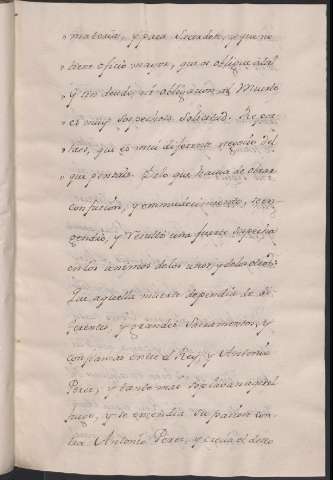 materia, y para Sacerdote, y que no
tiene oficio mayor, que os obligue a él
y sin deuda, ni obligacion al Muerto
es muy sospechosa solicitud. Repa-
rad, que es mui diferente negocio del
que pensais. De lo que havia de obrar
confusion, y enmudecimiento, se en-
gendró, y resultó una fuerte sospecha
en los animos de los unos, y de los otros:
Que aquella muerte dependia de di-
ferentes, y grandes Sacramentos, y
confianzas entre el Rey, y Antonio
Perez, y tanto mas soplavan aquel
fuego, y se encendia su pasion con-
tra Antonio Perez, y crecia el deseo